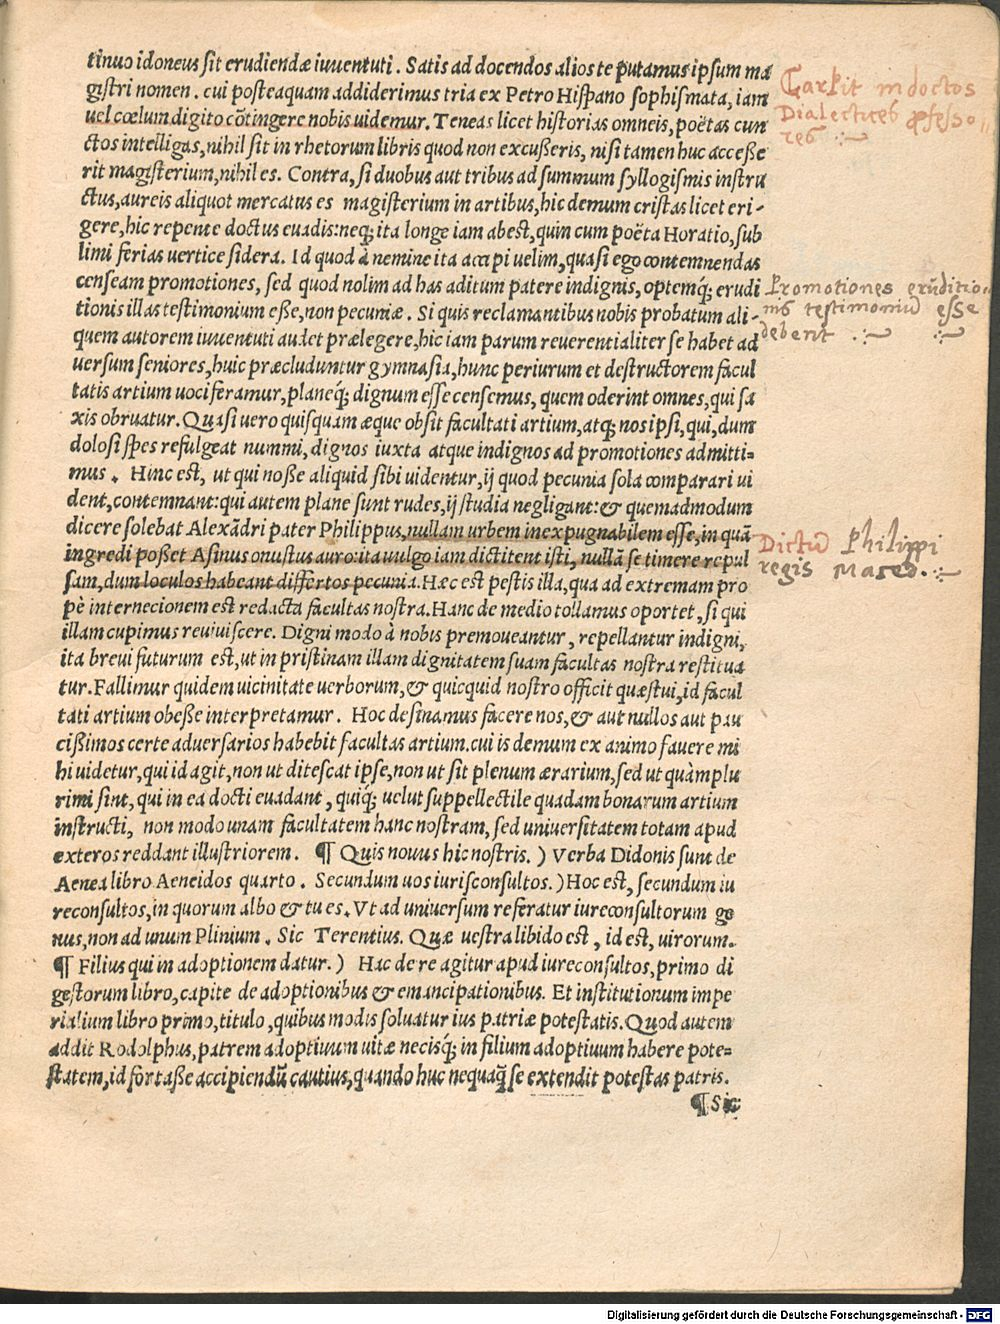 tinuo idoneus sit erudiendæ iuuentuti. Satis ad docendos alios te putamus ipsum ma
gistri nomen. cui posteaquam addiderimus tria ex Petro Hispano sophismata, iam
uel cœlum digito cõtingere nobis uidemur. Teneas licet historias omneis, poëtas cun
ctos intelligas, nihil sit in rhetorum libris quod non excußeris, nisi tamen huc acceße
rit magisterium, nihil es. Contra, si duobus aut tribus ad summum syllogismis instru
ctus, aureis aliquot mercatus es magisterium in artibus, hic demum cristas licet eri-
gere, hic repente doctus euadis: neq; ita longe iam abest, quin cum poëta Horatio, sub
limi ferias uertice sidera. Id quod à nemine ita accipi uelim, quasi ego contemnendas
censeam promotiones, sed quod nolim ad has aditum patere indignis, optemq́; erudi
tionis illas testimonium eße, non pecuniæ. Si quis reclamantibus nobis probatum ali-
quem autorem iuuentuti audet prælegere, hic iam parum reuerentialiter se habet ad
uersum seniores, huic præcluduntur gymnasia, hunc periurum et destructorem facul
tatis artium uociferamur, planeq́; dignum esse censemus, quem oderint omnes, qui sa
xis obruatur. Quasi uero quisquam æque obsit facultati artium, atq; nos ipsi, qui, dum
dolosi spes refulgeat nummi, dignos iuxta atque indignos ad promotiones admitti=
mus. Hinc est, ut qui noße aliquid sibi uidentur, ij quod pecunia sola comparari ui
dent, contemnant: qui autem plane sunt rudes, ij studia negligant: & quemadmodum
dicere solebat Alexãdri pater Philippus, nullam urbem inexpugnabilem esse, in quã
ingredi poßet Asinus onustus auro: ita uulgo iam dictitent isti, nullã se timere repul
sam, dum loculos habeant differtos pecunia. Hæc est pestis illa, qua ad extremam pro
pè internecionem est redacta facultas nostra. Hanc de medio tollamus oportet, si qui
illam cupimus reuiuiscere. Digni modo à nobis premoueantur, repellantur indigni,
ita breui futurum est, ut in pristinam illam dignitatem suam facultas nostra restitua
tur. Fallimur quidem uicinitate uerborum, & quicquid nostro officit quæstui, id facul
tati artium obeße interpretamur. Hoc desinamus facere nos, & aut nullos aut pau
cißimos certe aduersarios habebit facultas artium. cui is demum ex animo fauere mi
hi uidetur, qui id agit, non ut ditescat ipse, non ut sit plenum ærarium, sed ut quàmplu
rimi sint, qui in ea docti euadant, quiq; uelut suppellectile quadam bonarum artium
instructi, non modo unam facultatem hanc nostram, sed uniuersitatem totam apud
exteros reddant illustriorem. ¶ Quis nouus hic nostris.) Verba Didonis sunt de
Aenea libro Aeneidos quarto. Secundum uos iurisconsultos.) Hoc est, secundum iu
reconsultos, in quorum albo & tu es. Vt ad uniuersum referatur iureconsultorum ge
nus, non ad unum Plinium. Sic Terentius. Quæ uestra libido est, id est, uirorum.
¶ Filius qui in adoptionem datur.) Hac de re agitur apud iureconsultos, primo di
gestorum libro, capite de adoptionibus & emancipationibus. Et institutionum impe
rialium libro primo, titulo, quibus modis soluatur ius patriæ potestatis. Quod autem
addit Rodolphus, patrem adoptiuum uitæ necisq́; in filium adoptiuum habere pote=
statem, id fortaße accipiendũ cautius, quando huc nequaq̃ se extendit potestas patris.
¶ Sic
Carpit indoctos
Dialectices ꝓfesso
res
Promotiones erũditio
nis testimoniũ esse
debent
Dictũ Philippi
regis Maced.
Digitalisierung gefördert durch die Deutsche Forschungsgemeinschaft - DFG